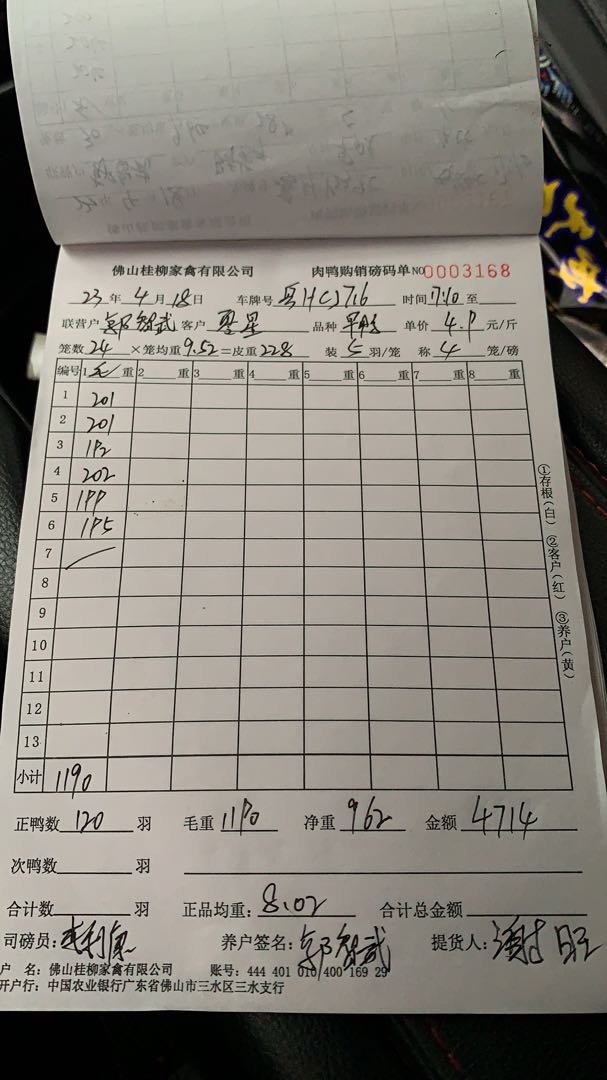 佛山桂柳家禽有限公司 肉鸭购销磅码单 NO 0003168
23 年 4 月 18 日 车牌号 粤HCJ716 时间 7:10 至
联营户 郭智武 客户 品种 单价 4.9 元/斤
笼数 24 ×笼均重 9.52 =皮重 228 装 5 羽/笼 称 4 笼/磅
编号 1 毛 重 2 重 3 重 4 重 5 重 6 重 7 重 8 重
1 201
2 201
3 192
4 202
5 199
6 195
7
8
9
10
11
12
13
小计 1190
①存根(白) ②客户(红) ③养户(黄)
正鸭数 120 羽 毛重 1190 净重 962 金额 4714
次鸭数 羽
合计数 羽 正品均重: 8.02 合计总金额
司磅员: 养户签名: 郭智武 提货人: 谢旺
户 名: 佛山桂柳家禽有限公司 账号: 444 401 010 400 169 29
开户行: 中国农业银行广东省佛山市三水区三水支行